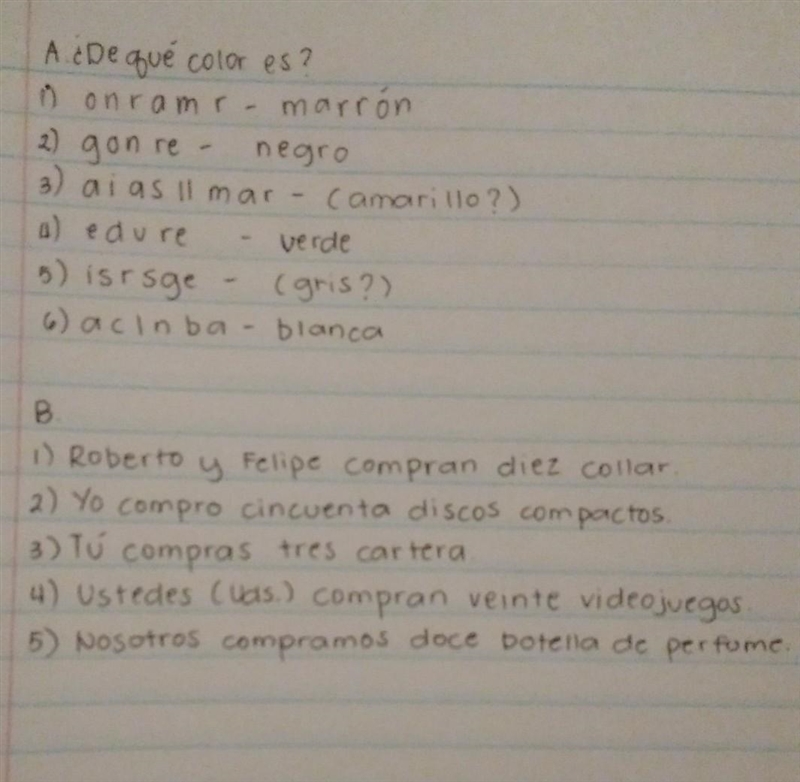 A. ¿De qué color es?
1) onramr - marrón
2) gonre - negro
3) aiasllmar - (amarillo?)
4) edvre - verde
5) isrsge - (gris?)
6) aclnba - blanca
B.
1) Roberto y Felipe compran diez collar.
2) Yo compro cincuenta discos compactos.
3) Tú compras tres cartera
4) Ustedes (Uds.) compran veinte videojuegos.
5) Nosotros compramos doce botella de perfume.